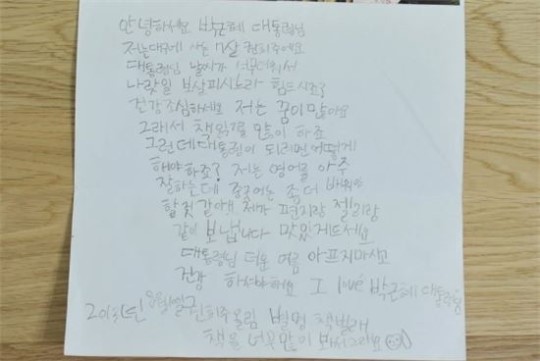 안녕하세요 박근혜 대통령님
저는대구에 사는 7살 권희주에요
대통령님 날씨가 너무더워서
나랏일 보살피시느라 힘드시죠?
건강조심하세요 저는 꿈이많아요
그래서 책읽기를 많이 하죠
그런데대통령이 되려면어떻게
해야하죠? 저는 영어를 아주
잘하는데 중국어는 좀더 배워야
할것 같아요 제가 편지랑 젤리랑
같이 보냅니다 맛있게드세요
대통령님 더운 여름 아프지마시고
건강 하셔야해요 I love 박근혜 대통령
2013년 8월 권희주올림 별명 책벌레
책을 너무많이 봐서그래요